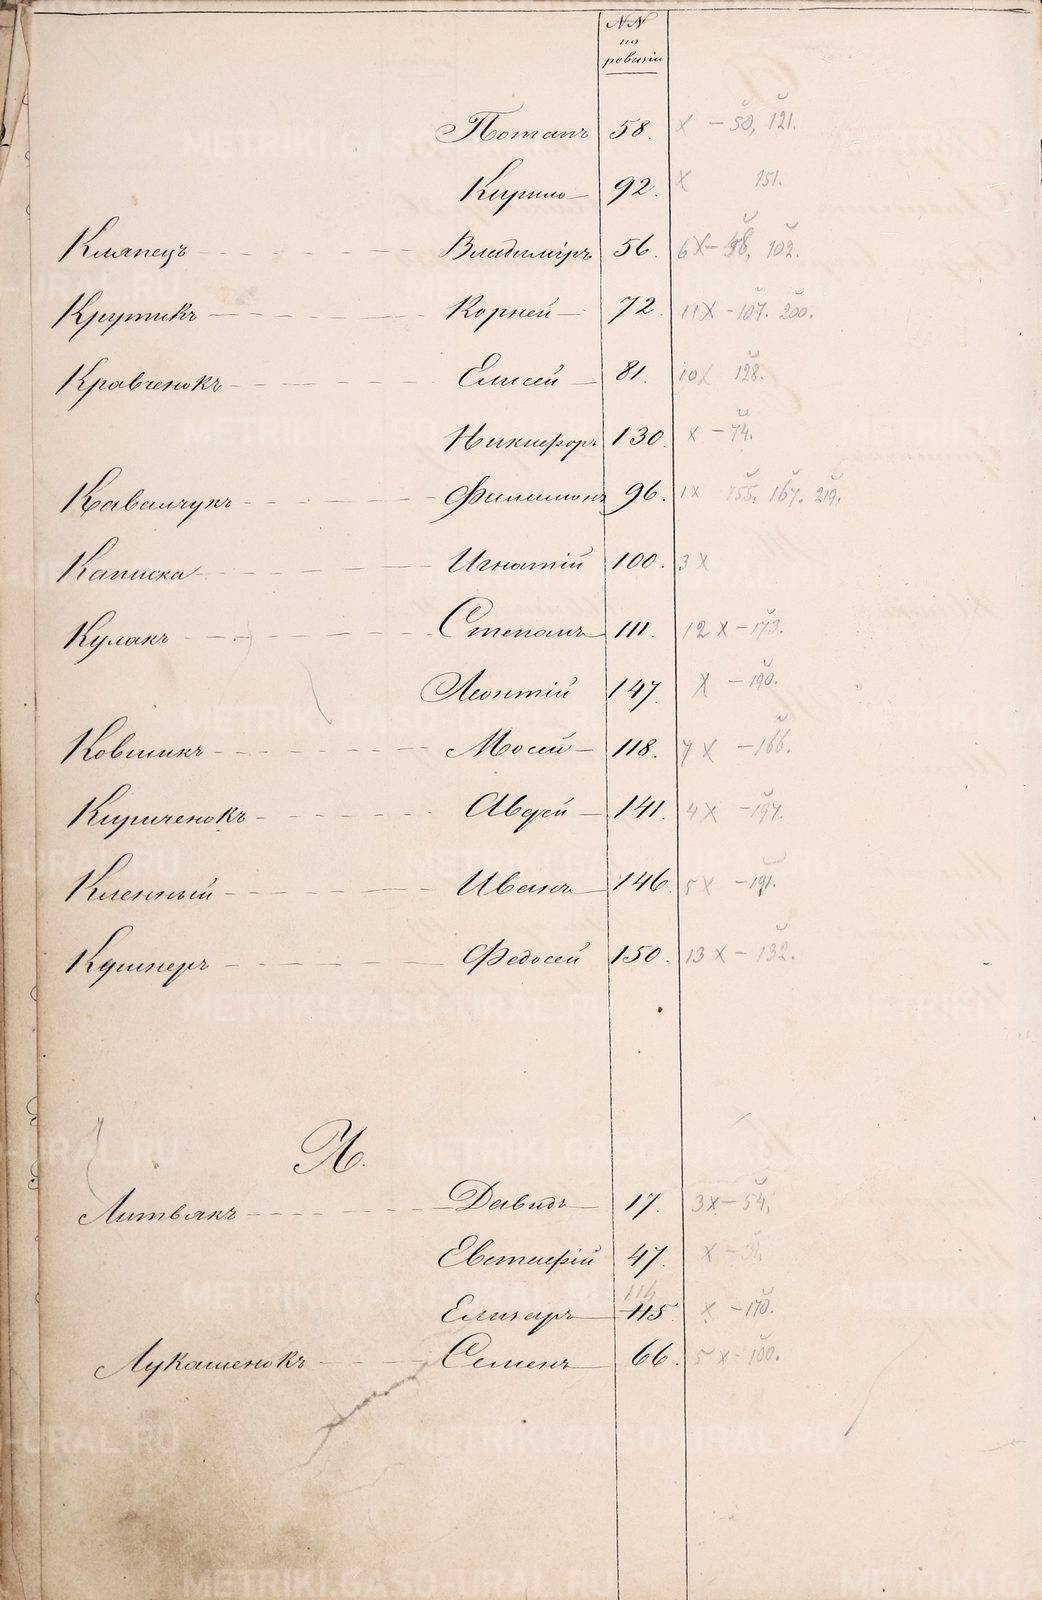 NN
по
ревизіи
Потапъ 58. х – 50, 121.
Кирило – 92. х 151.
Кляпецъ Владиміръ 56. 6х – 102.
Крутикъ Корней – 72 11х – 107. 200.
Кравченокъ Елисей – 81. 10х 128.
Никифоръ 130 х – 74.
Кавалчукъ Филимонъ 96. 1х 155, 167. 219.
Каписка Игнатій 100. 3х
Кулакъ Степанъ 111. 12х – 173.
Леонтій 147 х – 190.
Ковшикъ Мосей – 118. 7х – 166.
Кириченокъ Авдей – 141. 4х – 197.
Кленный Иванъ 146 5х – 191.
Кушнеръ Федосей 150. 13х – 132.
Л.
Литвякъ Давидъ 17. 3х – 54,
Евстафій 47. х –
114
Елизаръ 115. х – 170.
Лукашенокъ Семенъ 66. 5х – 100.
METRIKI.GASO-URAL.RU